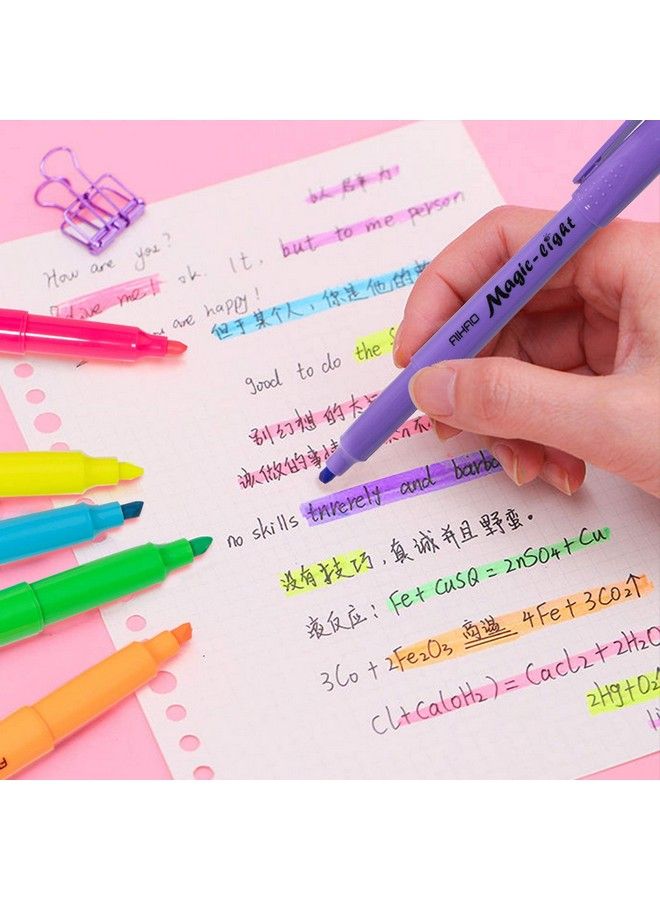 How are you?
ok. It, but to me person
I love me!
are happy!
但于某个人，你是他的
good to do the
别幻想的大
该做的事
no skills tnrerely and barba
没有技巧，真诚并且野蛮。
液反应：Fe+CuSO=2nSO4+Cu
3Co+2Fe2O3 高温 4Fe+3CO2↑
Cl+Ca(oH2)=Cacl2+2H2O
2Hg+O2
AIHAO Magic-light